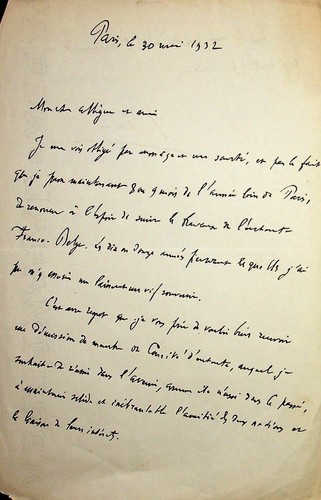 Paris, le 30 mai 1932
Mon cher collègue et ami
Je me vois obligé par mon âge et ma santé, et par le fait
que je passe maintenant 8 ou 9 mois de l'année loin de Paris,
de renoncer à l'espoir de suivre les travaux de l'entente
Franco-Belge. Les dix ou douze années pendant lesquelles j'ai
pu m'y associer me laissent un vif souvenir.
C'est avec regret que je vous prie de vouloir bien recevoir
ma démission de membre du Comité d'entente, auquel je
souhaite de réussir dans l'avenir, comme il a réussi dans le passé,
à maintenir solide et inébranlable l'amitié des deux nations et
la liaison de leurs intérêts.